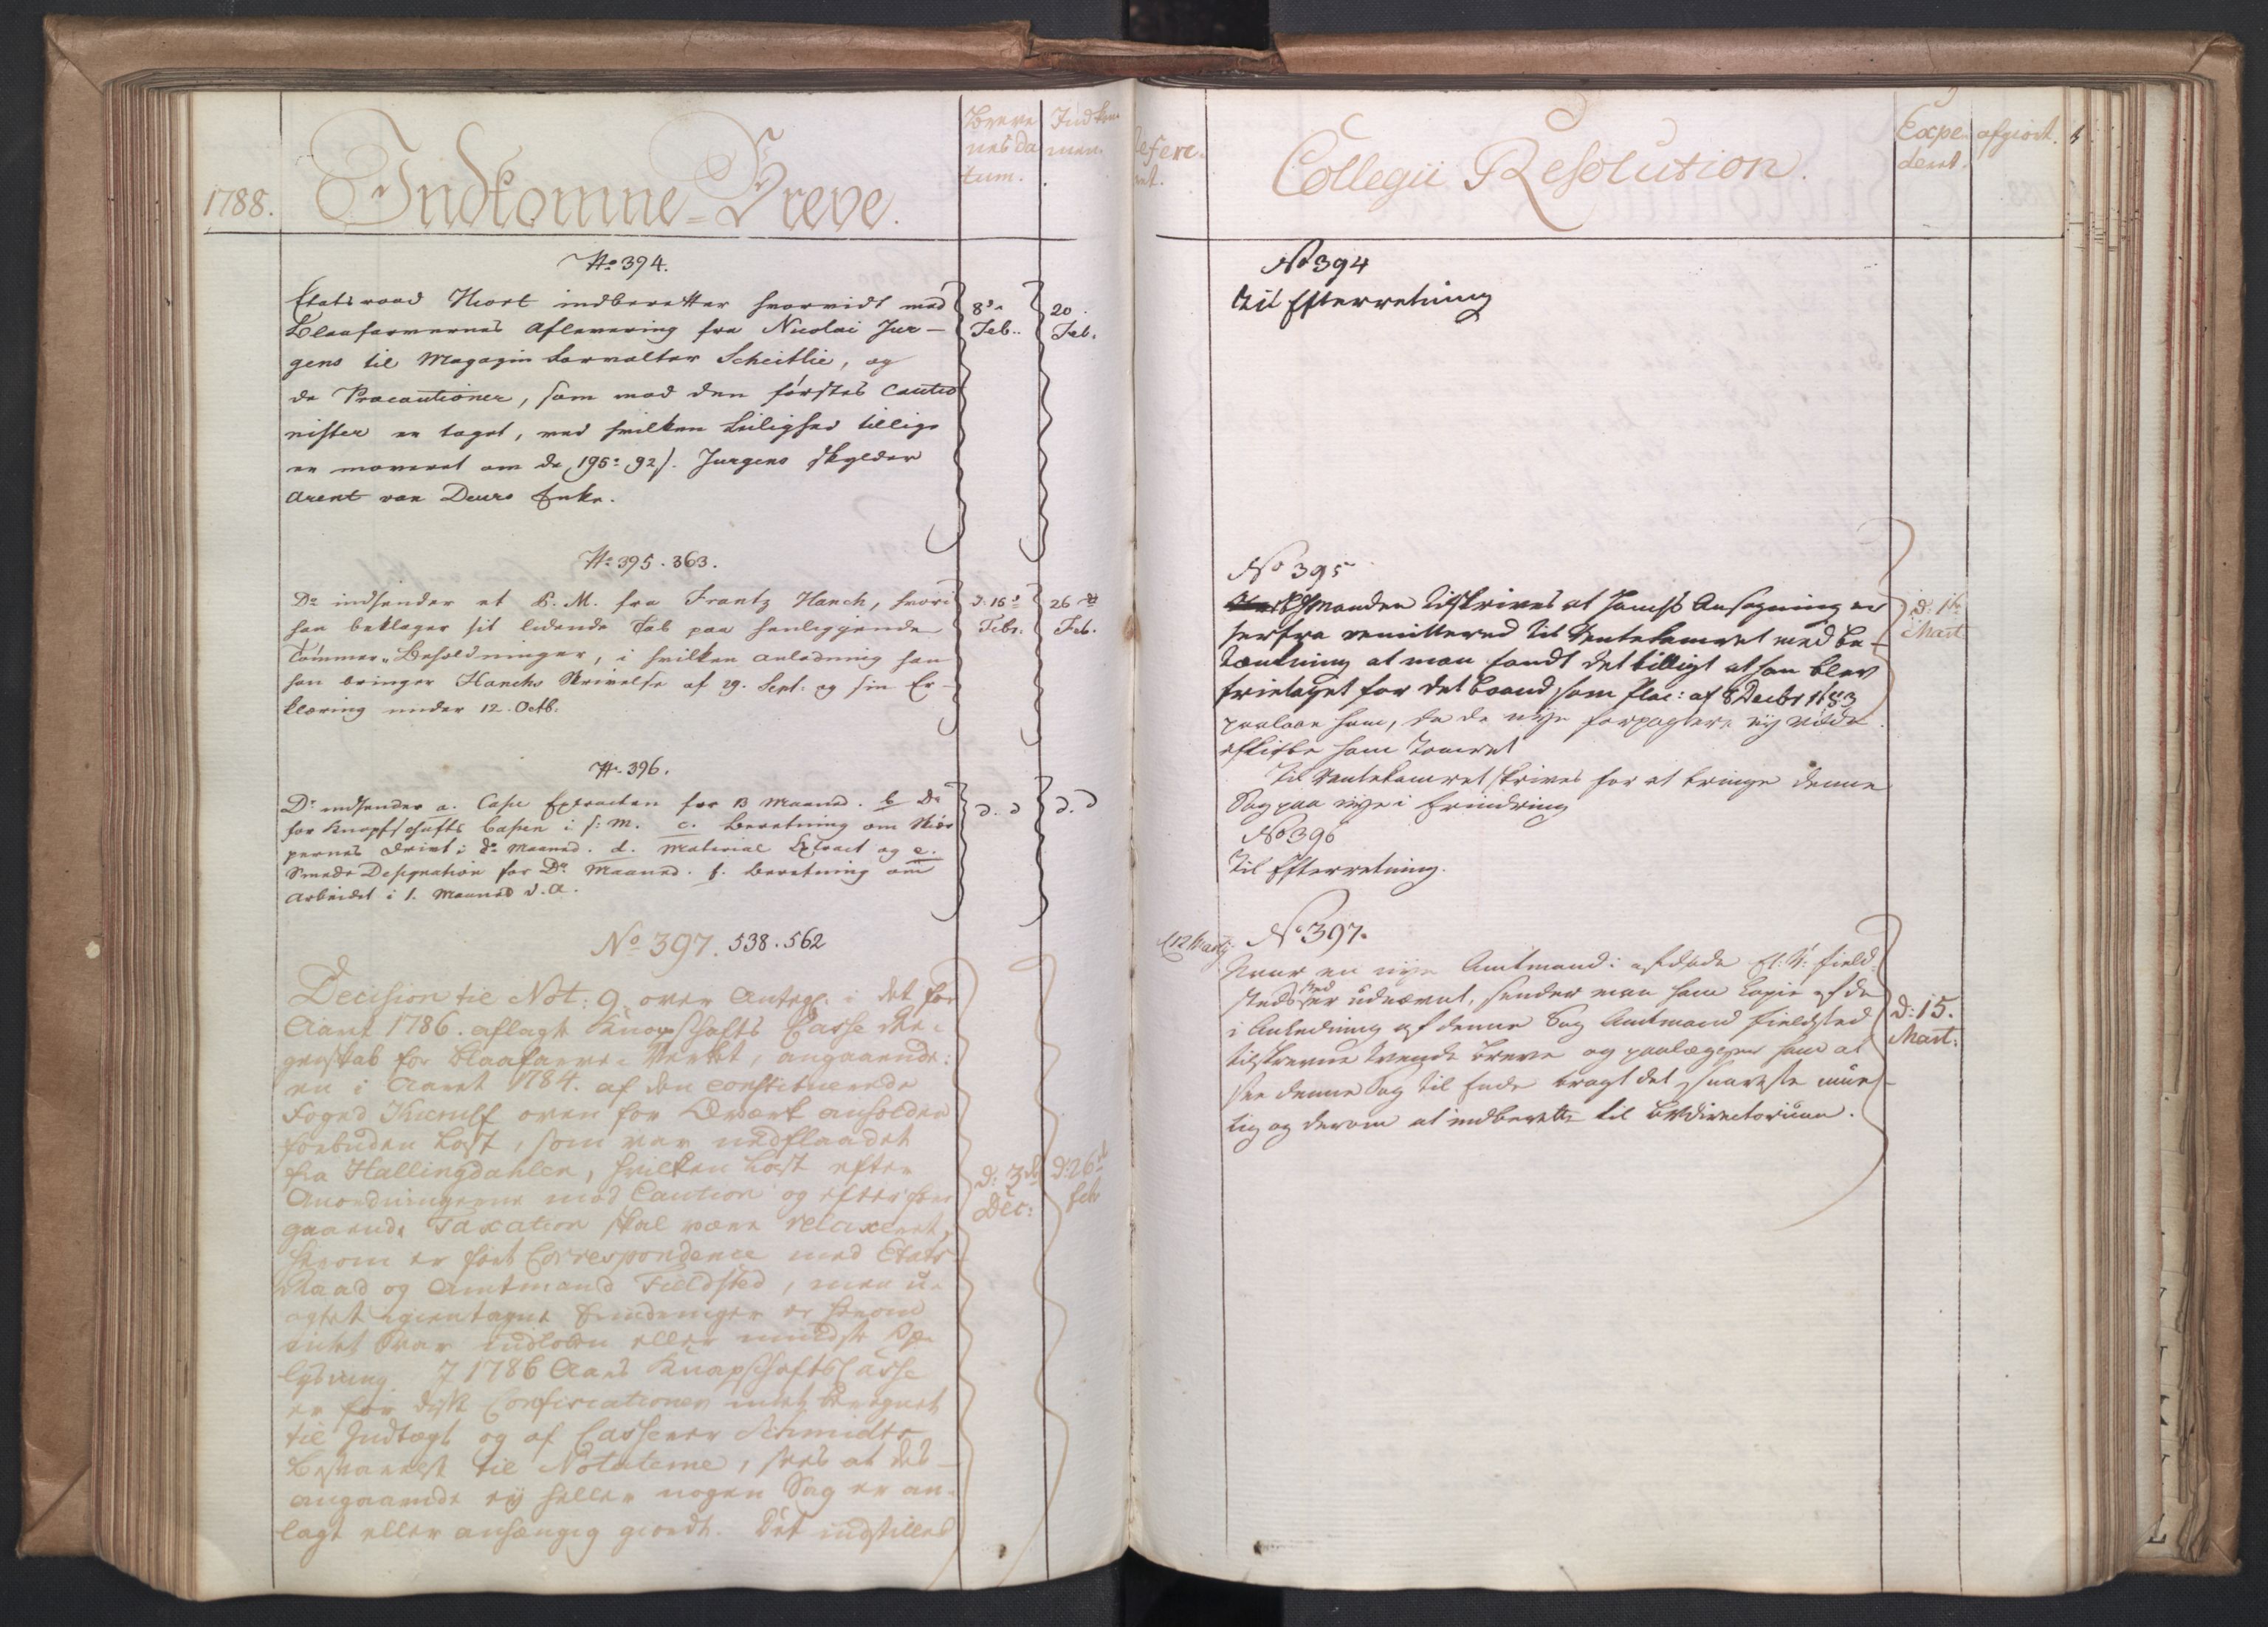 1788.
Indkomne-Breve.
Breve
nes Da
tum.
Indkom
men.
No 394.
Etatsraad Hiort indberetter hvorvidt med
Blaafarvernes Aflevering fra Nicolai Jur-
gens til Magazin Forvalter Scheitlie, og
de Præcautioner, som mod den førstes Cautio
nister er taget, ved hvilken Leilighed tillige
er moveret om de 195: 92 s. Jurgens skylder
Arent van Deurs Enke.
8de
Feb.
20
Feb.
No 395. 363.
Do indsender et P. M. fra Frantz Hanch, hvori
han beklager sit lidende Tab paa henliggende
Tømmer-Beholdninger, i hvilken anledning han
han bringer Hanchs Skrivelse af 29. Sept: og sin Er-
klæring under 12. Octb.
d. 16
Febr.
26
Feb.
No 396.
Do indsender a. Casse Extracten for 13 Maaned. b Do
for Knapschafts Cassen i s: M. c. Beretning om Skiær
pernes Drivt i do Maaned. d. Material Extract og e.
Smede Designation for Do Maaned. f. Beretning om
Arbeidet i 1. Maaned d. A.
d. d
d. d
No 397. 538. 562
Decision til Not: 9 over Antegn. i det for
Aaret 1786. aflagte Knapschafts Casse Re-
genskab for Blaafarve-Værket, angaaende
en i Aaret 1784. af den constituerede
Foged oven for Qværk anholden
forbuden Last, som var nedflaadet
fra Hallingdahlen, hvilken Last efter
Anordningerne mod Caution og efter fore
gaaende Taxation skal være relaxeret,
herom er ført Correspondence med Etats
Raad og Amtmand Fieldsted, men u-
agtet igientagne Erindringer er herom
intet Svar indløben eller mindste Op-
lysning. I 1786 Aars Knapschafts Casse
er for disse Confiscationer intet beregnet
til Indtægt og af Casserer Schmidts
Besvarelse til Notaterne, sees at des-
angaaende ey heller nogen Sag er an-
lagt eller anhængig giordt. Det indstilles
d: 3
Dec:
d: 26
Feb
Refere
nt.
Collegii Resolution.
Expe
dert.
afgiort.
No 394
Til Efterretning
No 395
tilskrives at Hanchs Ansøgning er
herfra remitteret til Rentekamret med be-
tænkning at man fandt det billigt at han blev
frietaget for det Baand som Plac: af 8 Decbr 1783
paalagde ham, da de nye forpagtere ey vilde
afkiøbe ham Tømret
Til Rentekamret skrives for at bringe denne
Sag paa nye i Erindring
d: 1te
Mart.
No 396
Til Efterretning.
12 Marty
No 397.
Naar en nye Amtmand i afdøde Et: R: Field-
steds Sted er udnævnt, sender man ham Copie af de
i Anledning af denne Sag Amtmand Fieldsted
tilskrevne tvende Breve og paalægger ham at
see denne Sag til Ende bragt det snareste mue-
lig og derom at indberette til BVdirectorium.
d: 15.
Mart: